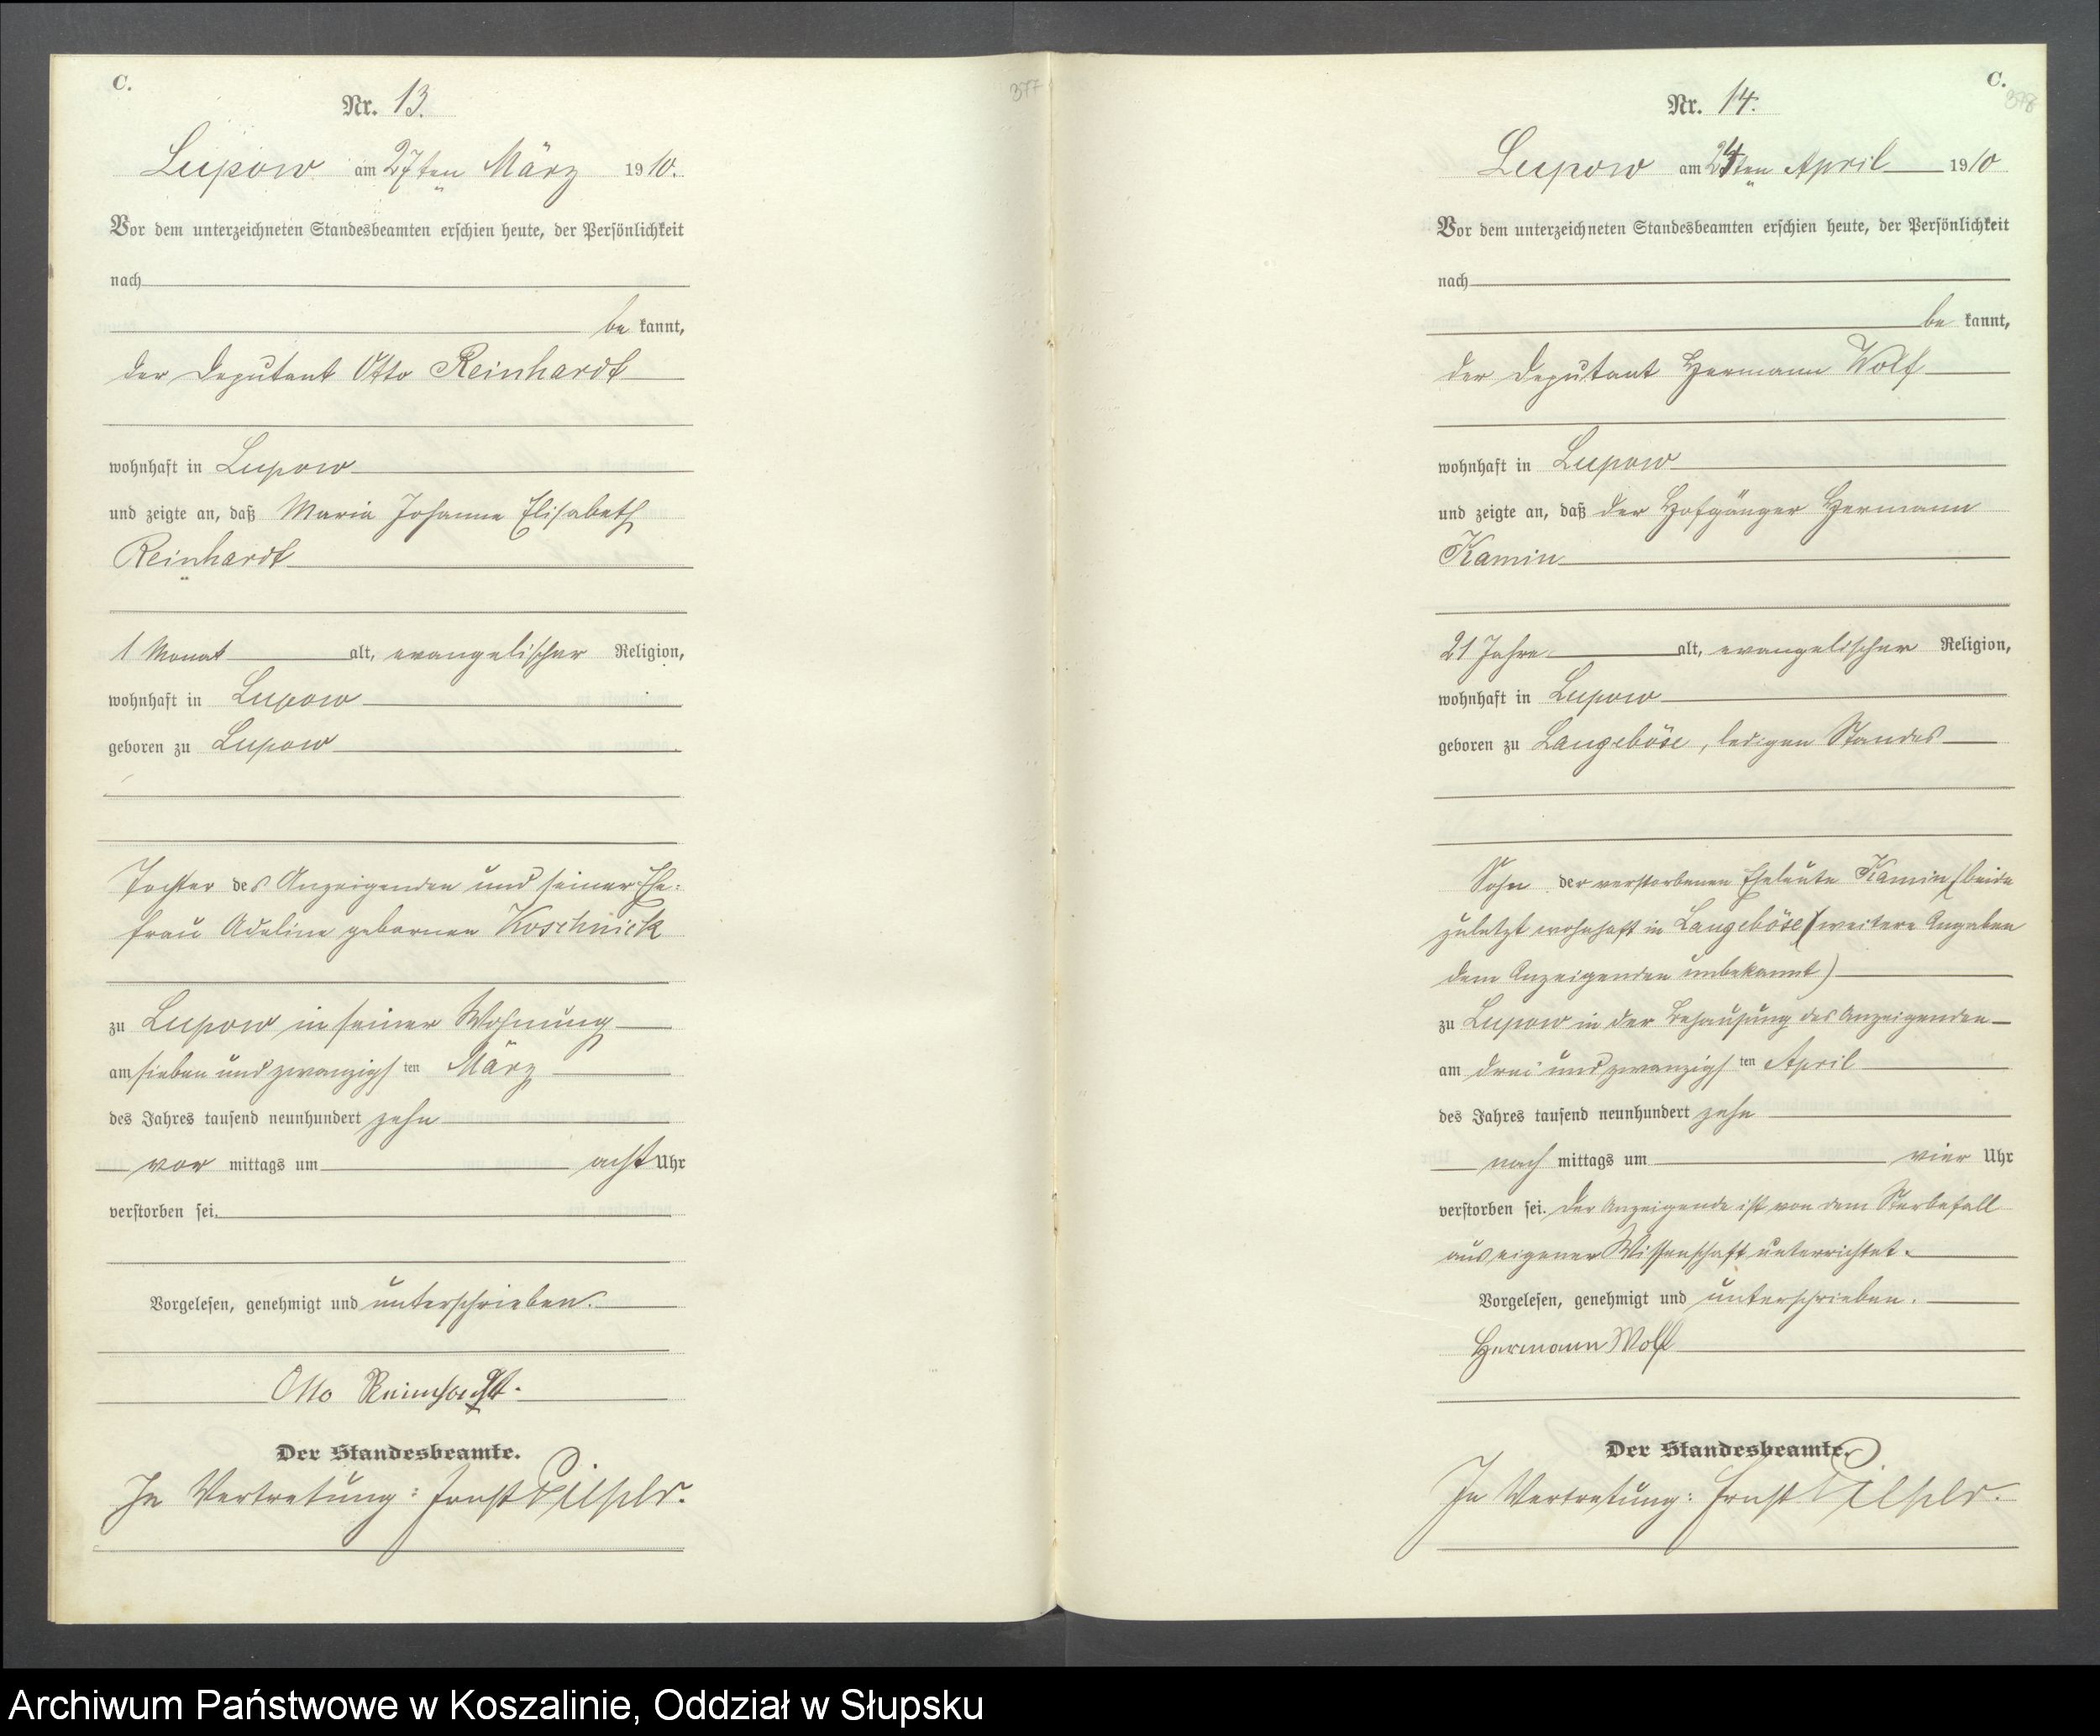 C.
Nr. 13.
Lupow am 27ten März 1910.
Vor dem unterzeichneten Standesbeamten erschien heute, der Persönlichkeit
nach
be kannt,
der Deputant Otto Reinhardt
wohnhaft in Lupow
und zeigte an, daß Maria Johanne Elisabeth
Reinhardt
1 Monat alt, evangelischer Religion,
wohnhaft in Lupow
geboren zu Lupow
Tochter des Anzeigenden und seiner Ehe-
frau Adeline geborenen Koschnick
zu Lupow in seiner Wohnung
am sieben und zwanzigsten März
des Jahres tausend neunhundert zehn
vor mittags um acht Uhr
verstorben sei.
Vorgelesen, genehmigt und unterschrieben.
Otto Reinhardt.
Der Standesbeamte.
In Vertretung: Ernst
377
C.
378
Nr. 14.
Lupow am 24ten April 1910
Vor dem unterzeichneten Standesbeamten erschien heute, der Persönlichkeit
nach
be kannt,
der Deputant Hermann Wolf
wohnhaft in Lupow
und zeigte an, daß der Hofgänger Hermann
Kamin
21 Jahre alt, evangelischer Religion,
wohnhaft in Lupow
geboren zu Langeböse, ledigen Standes
Sohn der verstorbenen Eheleute Kamin (beide
zuletzt wohnhaft in Langeböse (weitere Angaben
dem Anzeigenden unbekannt)
zu Lupow in der Behausung des Anzeigenden
am drei und zwanzigsten April
des Jahres tausend neunhundert zehn
nach mittags um vier Uhr
verstorben sei. Der Anzeigende ist von dem Sterbefall
aus eigener Wissenschaft unterrichtet.
Vorgelesen, genehmigt und unterschrieben.
Hermann Wolf
Der Standesbeamte.
In Vertretung: Ernst
Archiwum Państwowe w Koszalinie, Oddział w Słupsku